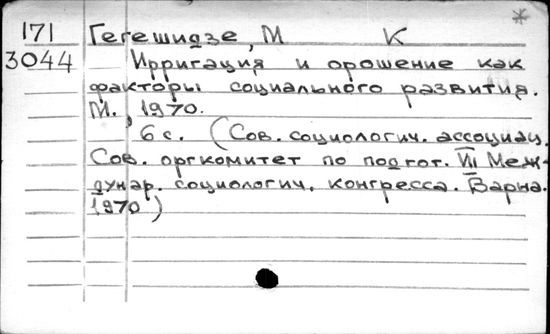 171 Гегешидзе, М К *
3044 Ирригация и орошение как
факторы социального развития.
М., 1970.
6 с. (Сов. социологич. ассоциац.
Сов. оргкомитет по подгот. VII Меж-
дунар. социологич. конгресса. Варна.
1970)